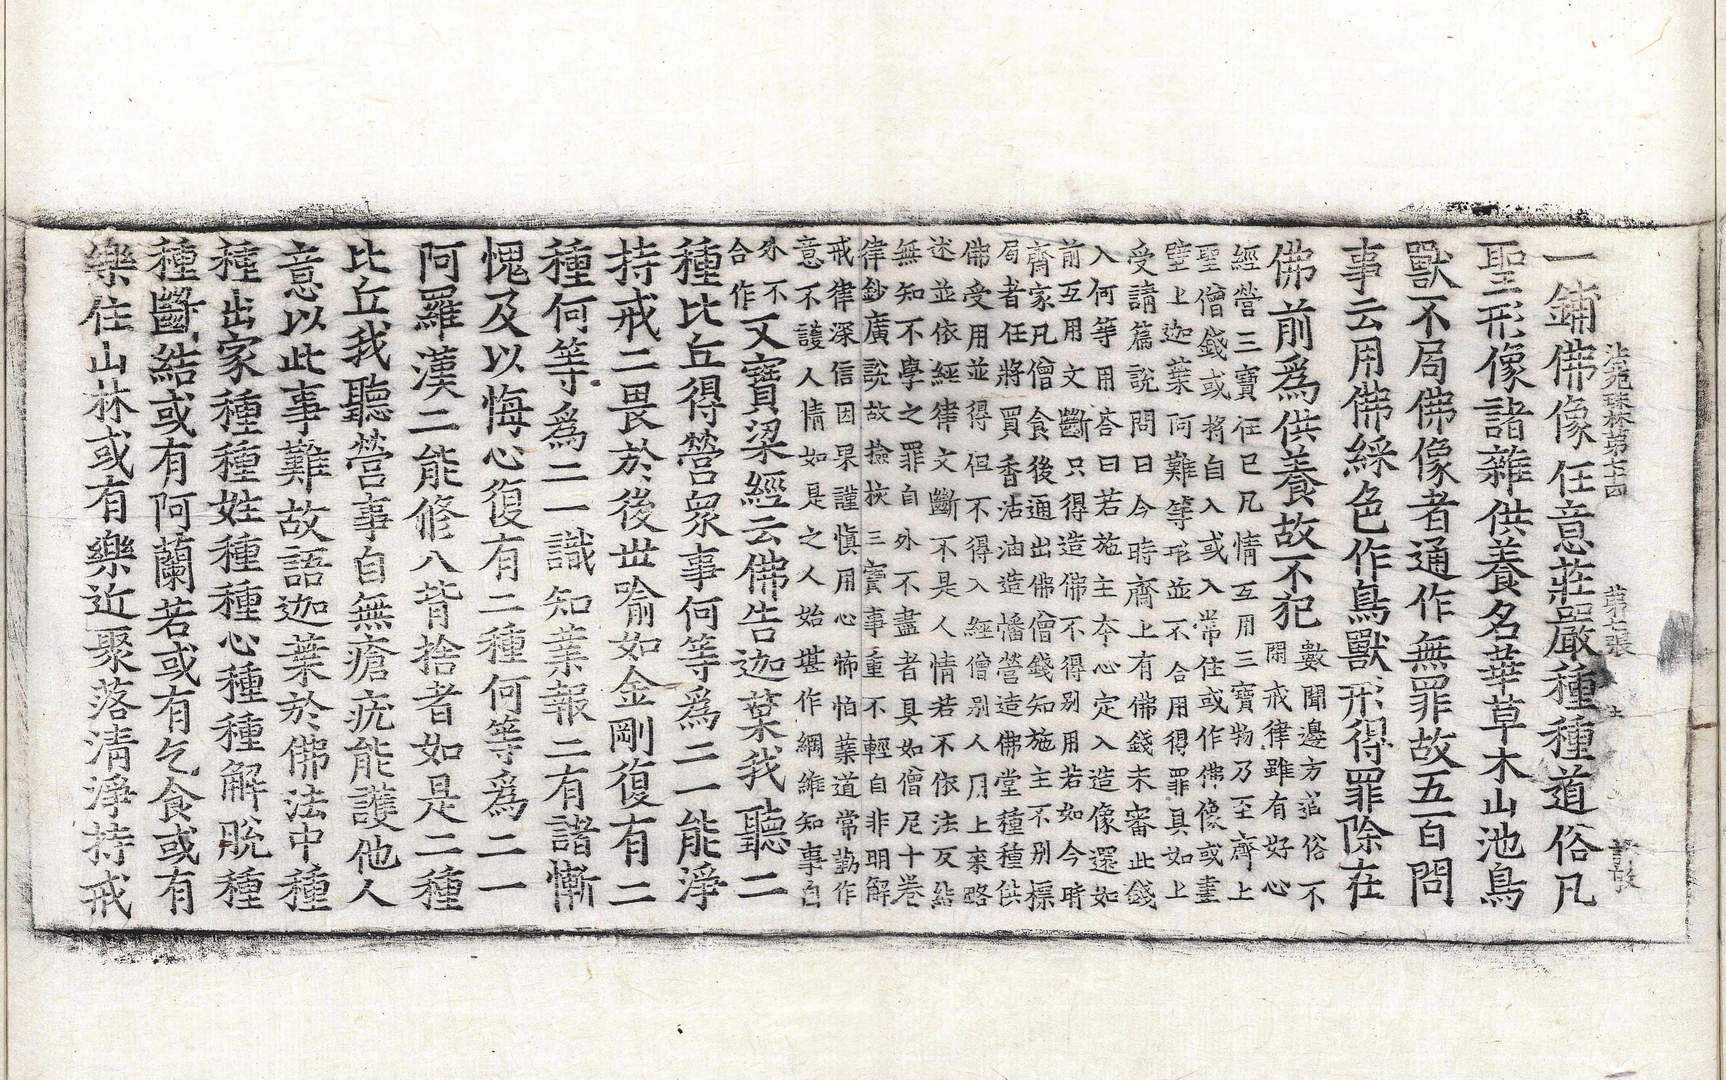 法苑珠林第七十四 第七張
一鋪佛像任意莊嚴種種道俗凡
聖形像諸雜供養名華草木山池鳥
獸不局佛像者通作無罪故五百問
事云用佛綵色作鳥獸形得罪除在
佛前爲供養故不犯
數聞邊方道俗不
閑戒律雖有好心
經營三寶任己凡情互用三寶物乃至齋上
聖僧錢或將自入或入常住或作佛像或畫
壁上迦葉阿難等形並不合用得罪具如上
受請篇說問曰今時齋上有佛錢未審此錢
入何等用答曰若施主本心定入造像還如
前互用文斷只得造佛不得別用若如今時
齊家凡僧食後通出佛僧錢知施主不別標
局者任將買香活油造幡營造佛堂種種供
佛受用並得但不得入經僧別人用上來略
述並依經律文斷不是人情若不依法反結
無知不學之罪自外不盡者具如僧尼十卷
律鈔廣說故撿挍三寶事重不輕自非明解
戒律深信因果謹愼用心怖怕業道常勤作
意不護人情如是之人始堪作綱維知事自
外不
合作
又寶梁經云佛告迦葉我聽二
種比丘得營衆事何等爲二一能淨
持戒二畏於後世喻如金剛復有二
種何等爲二一識知業報二有諸慚
愧及以悔心復有二種何等爲二一
阿羅漢二能修八背捨者如是二種
比丘我聽營事自無瘡疣能護他人
意以此事難故語迦葉於佛法中種
種出家種種姓種種心種種解脫種
種斷結或有阿蘭若或有乞食或有
樂住山林或有樂近聚落淸淨持戒